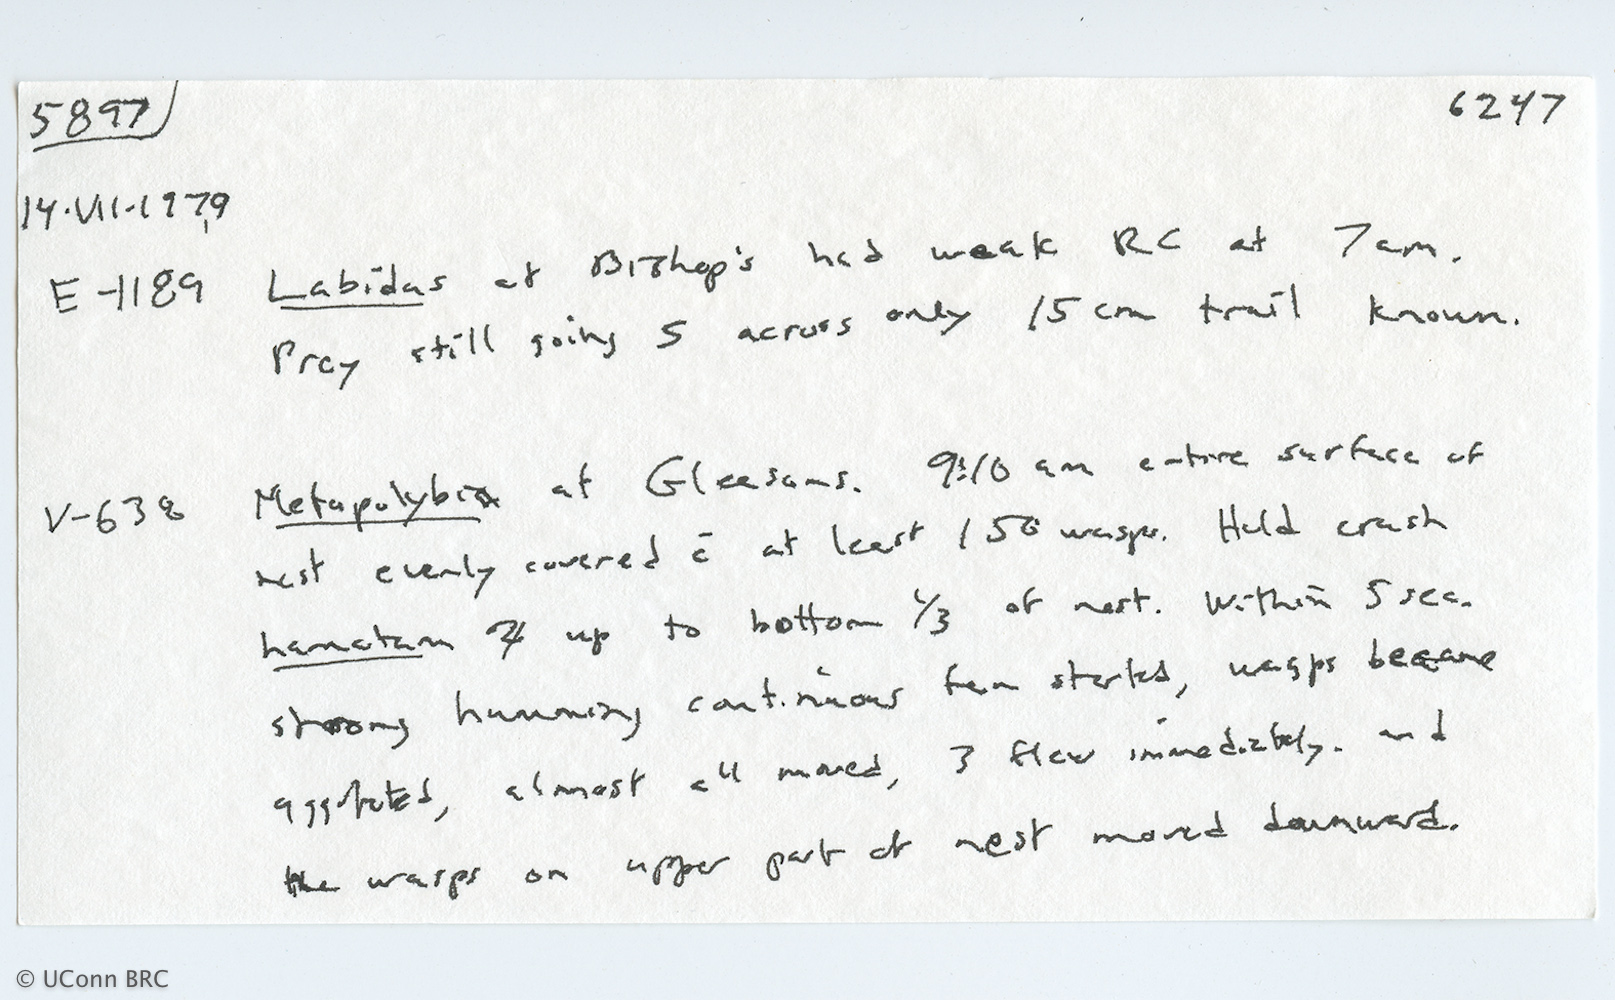 5897 6247
14.VII.1979
E-1189 Labidus at Bishop's had weak RC at 7am.
Prey still going S across only 15cm trail known.
V-638 Metapolybia at Gleesons. 9:10 am entire surface of
nest evenly covered c̄ at least 150 wasps. Held crush
hamatum up to bottom 1/3 of nest. Within 5 sec.
strong humming continuous started, wasps became
almost all moved, 3 flew immediately. and
the wasps on upper part of nest moved downward.
© UConn BRC